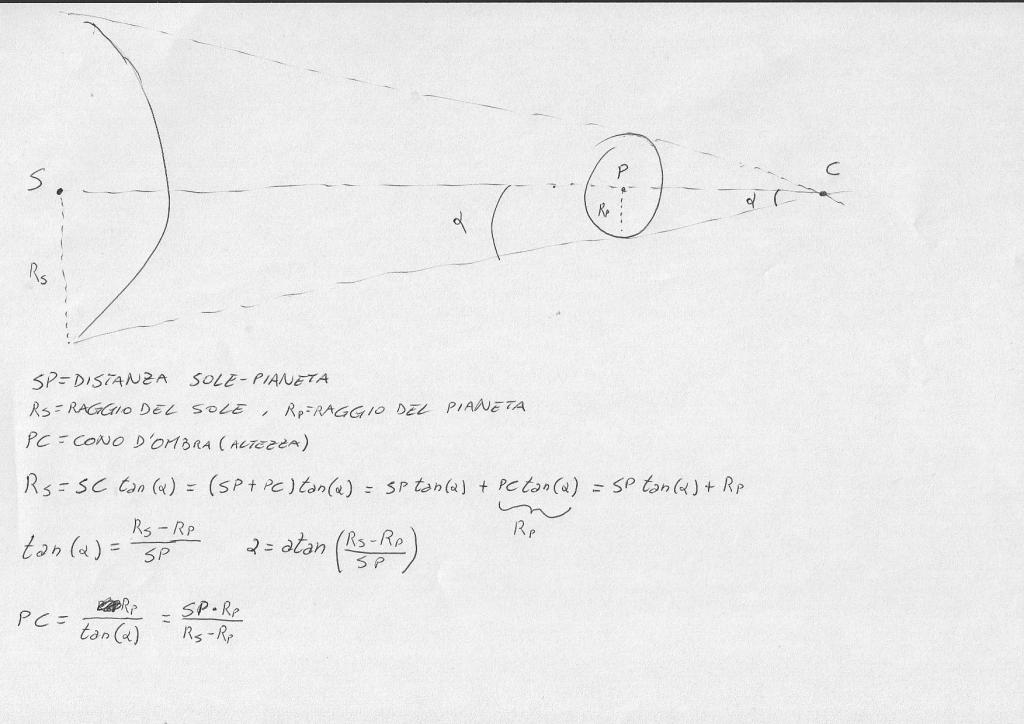 S
P
C
Rₚ
α
α
Rₛ
SP=DISTANZA SOLE-PIANETA
Rₛ=RAGGIO DEL SOLE, Rₚ=RAGGIO DEL PIANETA
PC=CONO D'OMBRA (ALTEZZA)
Rₛ = SC tan(α) = (SP + PC) tan(α) = SP tan(α) + PC tan(α) = SP tan(α) + Rₚ
Rₚ
tan(α) = (Rₛ - Rₚ)/SP α = atan((Rₛ - Rₚ)/SP)
PC = Rₚ/tan(α) = SP·Rₚ/(Rₛ - Rₚ)